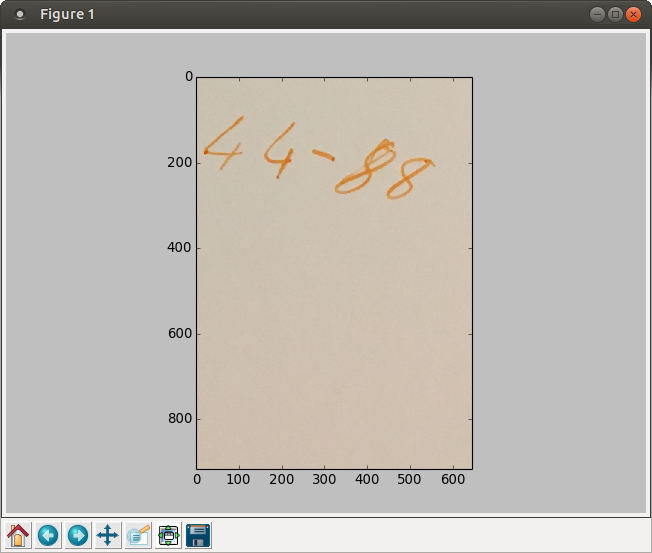 Figure 1
0
44-88
200
400
600
800
0 100 200 300 400 500 600